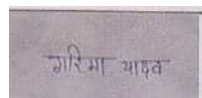 गरिमा यादव